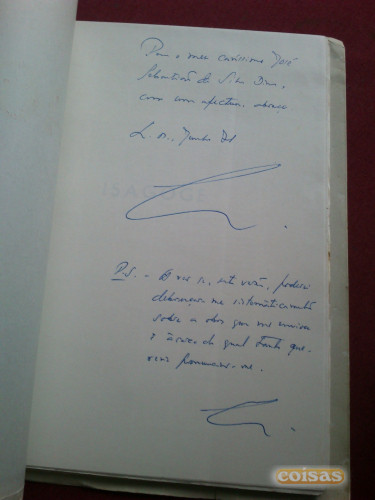 Para o meu caríssimo José
Sebastião da Silva Dias,
com um afectuoso abraço
Lx.
ISAGOGE
P.S. - A ver se, este verão, poderei
debruçar-me sistemàticamente
sobre a obra que me enviou
e àcerca da qual tanto que-
ria pronunciar-me.
coisas